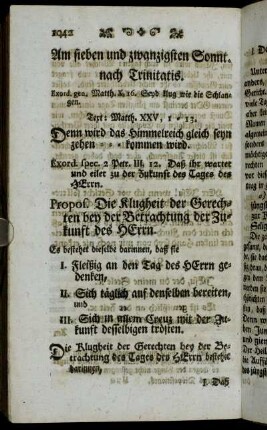 1042
Am sieben und zwanzigsten Sonnt.
nach Trinitatis.
Exord. gen. Matth. X. 16. Seyd klug wie die Schlan-
gen.
Text: Matth. XXV. 1 - 13.
Denn wird das Himmelreich gleich seyn
zehen - - - kommen wird.
Exord. spec. 2 Petr. III. 12. Daß ihr wartet
und eilet zu der Zukunft des Tages des
HErrn.
Propos. Die Klugheit der Gerech-
ten bey der Betrachtung der Zu-
kunft des HErrn
Es bestehet dieselbe darinnen, daß sie
I. Fleißig an den Tag des HErrn ge-
dencken,
II. Sich täglich auf denselben bereiten,
und
III. Sich in allem Creutz mit der Zu-
kunft desselbigen trösten.
Die Klugheit der Gerechten bey der Be-
trachtung des Tages des HErrn bestehet
darinnen,
I. Daß